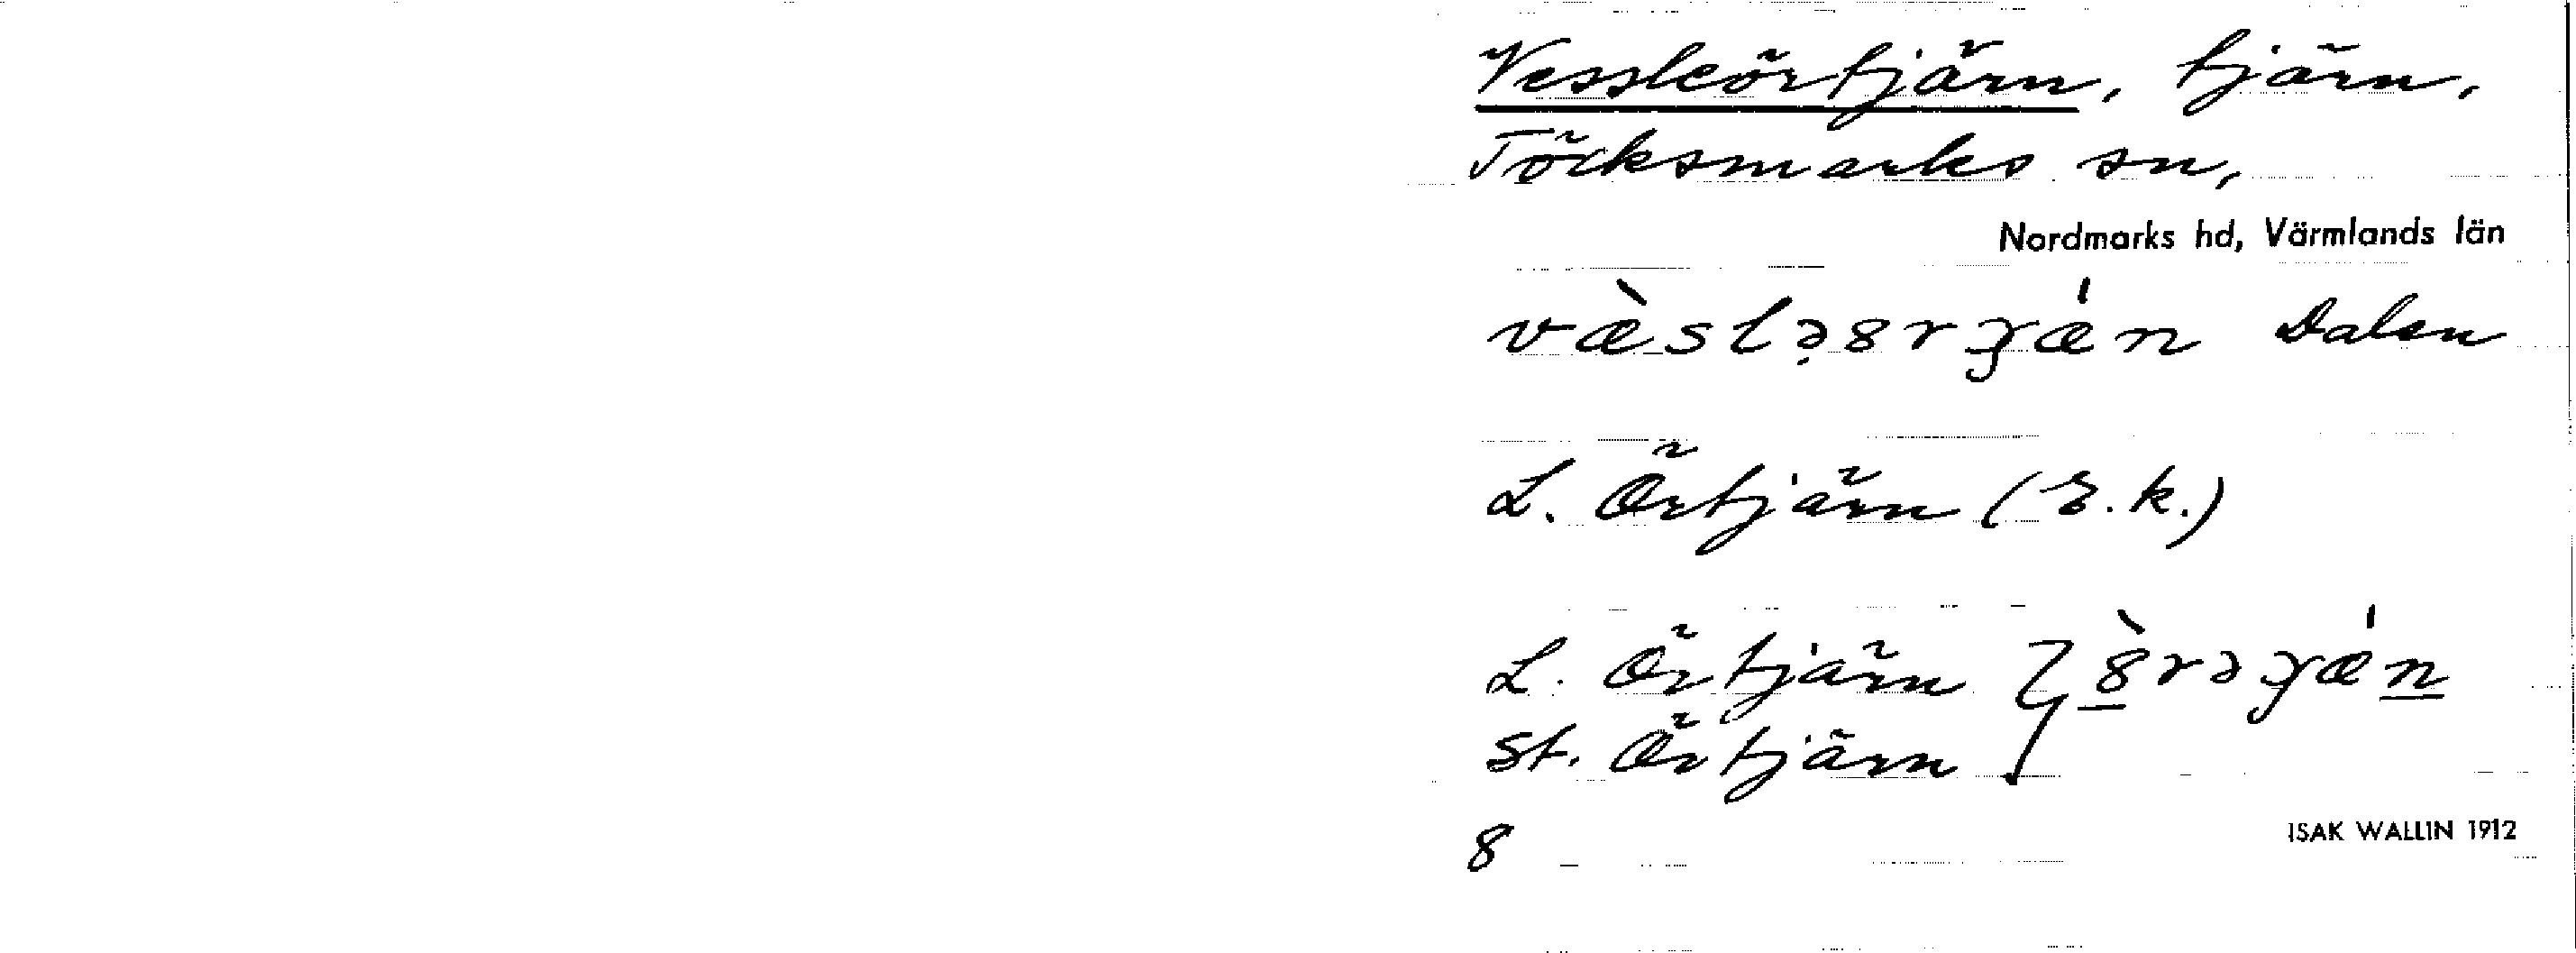 Vessleörtjärn, tjärn,
Töcksmarks sn,
Nordmarks hd, Värmlands län
Dalen
L. Örtjärn (E.k.)
L. Örtjärn
St. Örtjärn
8
ISAK WALLIN 1912